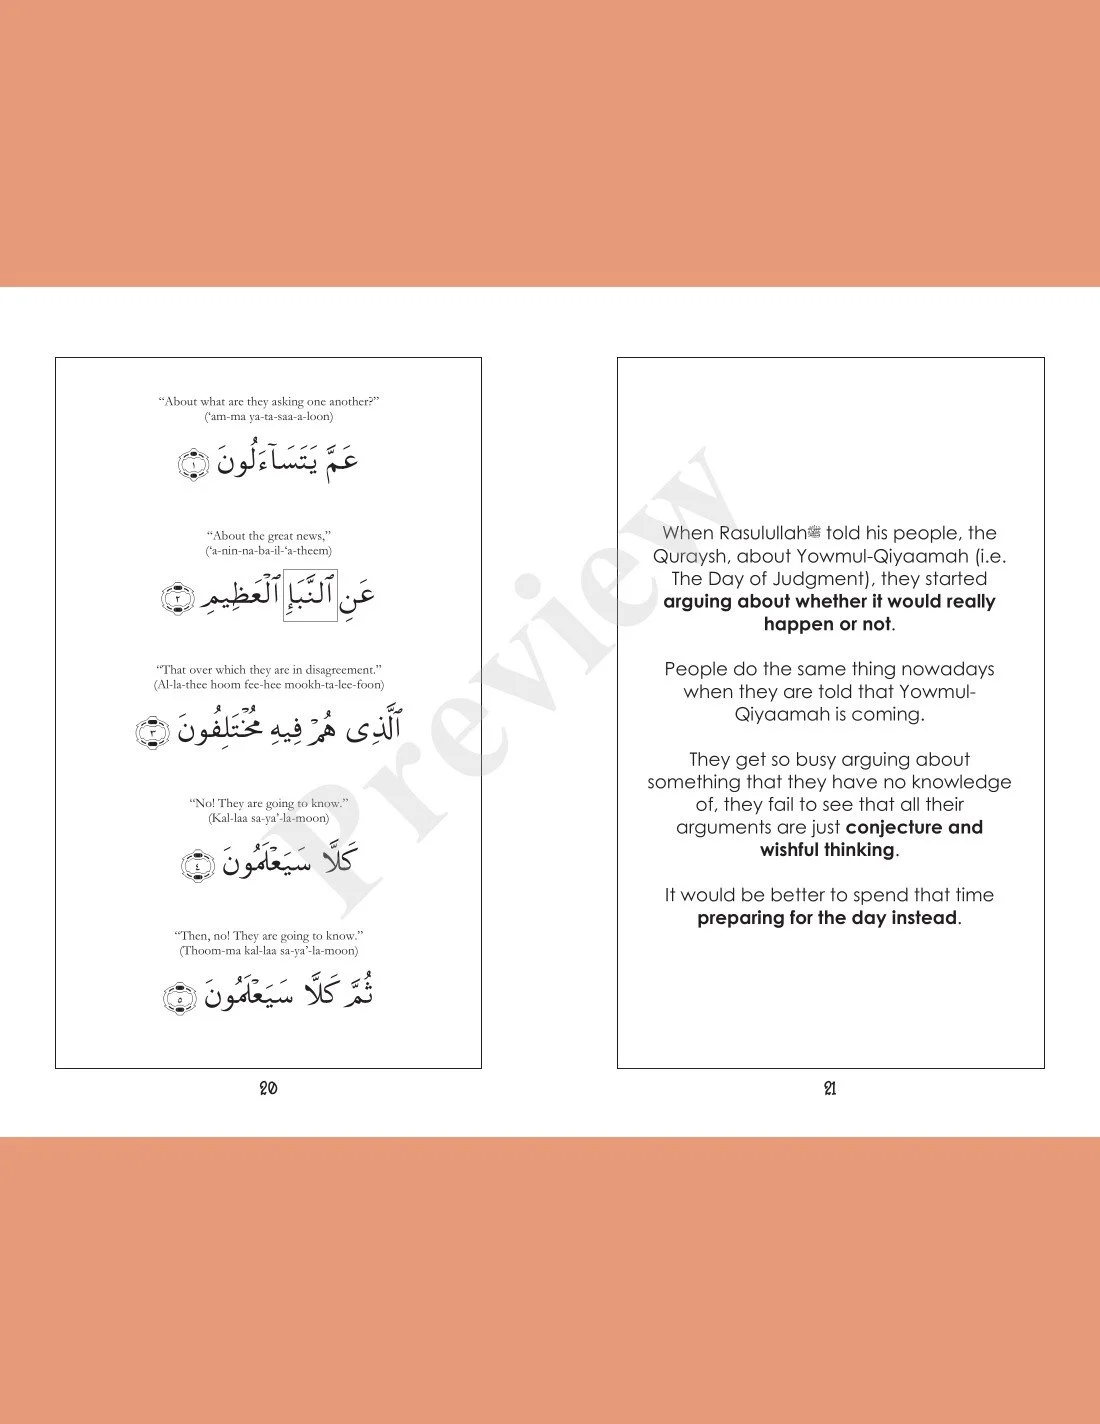 “About what are they asking one another?”
(‘am-ma ya-ta-saa-a-loon)
عَمَّ يَتَسَآءَلُونَ ١
“About the great news,”
(‘a-nin-na-ba-il-‘a-theem)
عَنِ ٱلنَّبَإِ ٱلْعَظِيمِ ٢
“That over which they are in disagreement.”
(Al-la-thee hoom fee-hee mookh-ta-lee-foon)
ٱلَّذِى هُمْ فِيهِ مُخْتَلِفُونَ ٣
“No! They are going to know.”
(Kal-laa sa-ya’-la-moon)
كَلَّا سَيَعْلَمُونَ ٤
“Then, no! They are going to know.”
(Thoom-ma kal-laa sa-ya’-la-moon)
ثُمَّ كَلَّا سَيَعْلَمُونَ ٥
20
When Rasulullahﷺ told his people, the
Quraysh, about Yowmul-Qiyaamah (i.e.
The Day of Judgment), they started
arguing about whether it would really
happen or not.
People do the same thing nowadays
when they are told that Yowmul-
Qiyaamah is coming.
They get so busy arguing about
something that they have no knowledge
of, they fail to see that all their
arguments are just conjecture and
wishful thinking.
It would be better to spend that time
preparing for the day instead.
21
Preview